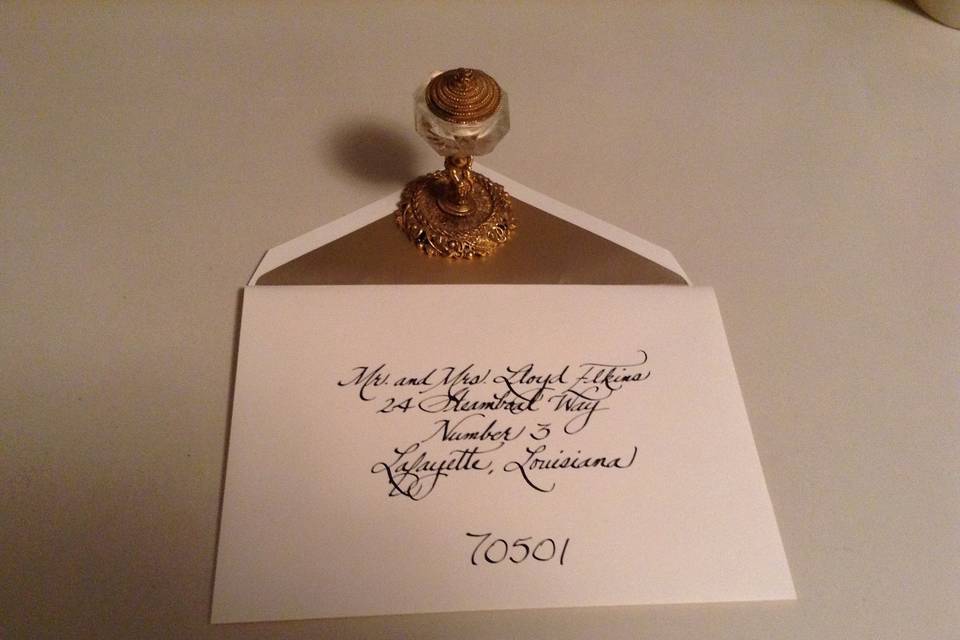 Mr. and Mrs. Lloyd Elkins
24 Steamboat Way
Number 3
Lafayette, Louisiana
70501